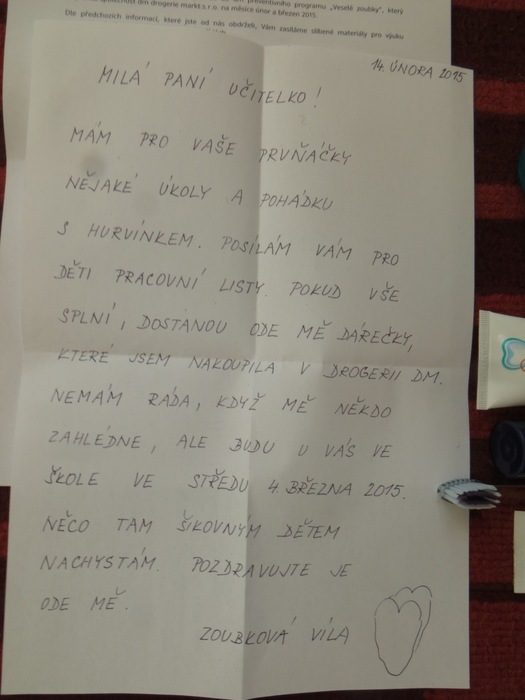 společnost dm drogerie markt s.r.o. na měsíce únor a březen 2015.
Dle předchozích informací, které jste od nás obdrželi, Vám zasíláme slíbené materiály pro výuku
14. ÚNORA 2015
MILÁ PANÍ UČITELKO!
MÁM PRO VAŠE PRVŇÁČKY
NĚJAKÉ ÚKOLY A POHÁDKU
S HURVÍNKEM. POSÍLÁM VÁM PRO
DĚTI PRACOVNÍ LISTY. POKUD VŠE
SPLNÍ, DOSTANOU ODE MĚ DÁREČKY,
KTERÉ JSEM NAKOUPILA V DROGERII DM.
NEMÁM RÁDA, KDYŽ MĚ NĚKDO
ZAHLÉDNE, ALE BUDU U VÁS VE
ŠKOLE VE STŘEDU 4. BŘEZNA 2015.
NĚCO TAM ŠIKOVNÝM DĚTEM
NACHYSTÁM. POZDRAVUJTE JE
ODE MĚ.
ZOUBKOVÁ VÍLA